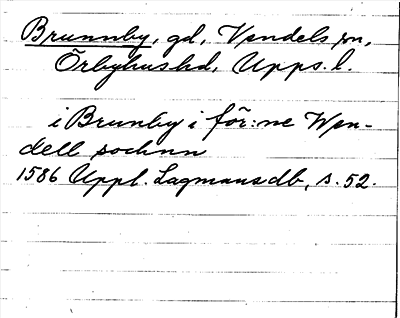 Brunnby, gd, Vendels sn,
Örbyhushd, Upps. l.
i Brunby i för:ne Wen-
dell sochnn
1586 Uppl. Lagmansdb, s. 52.